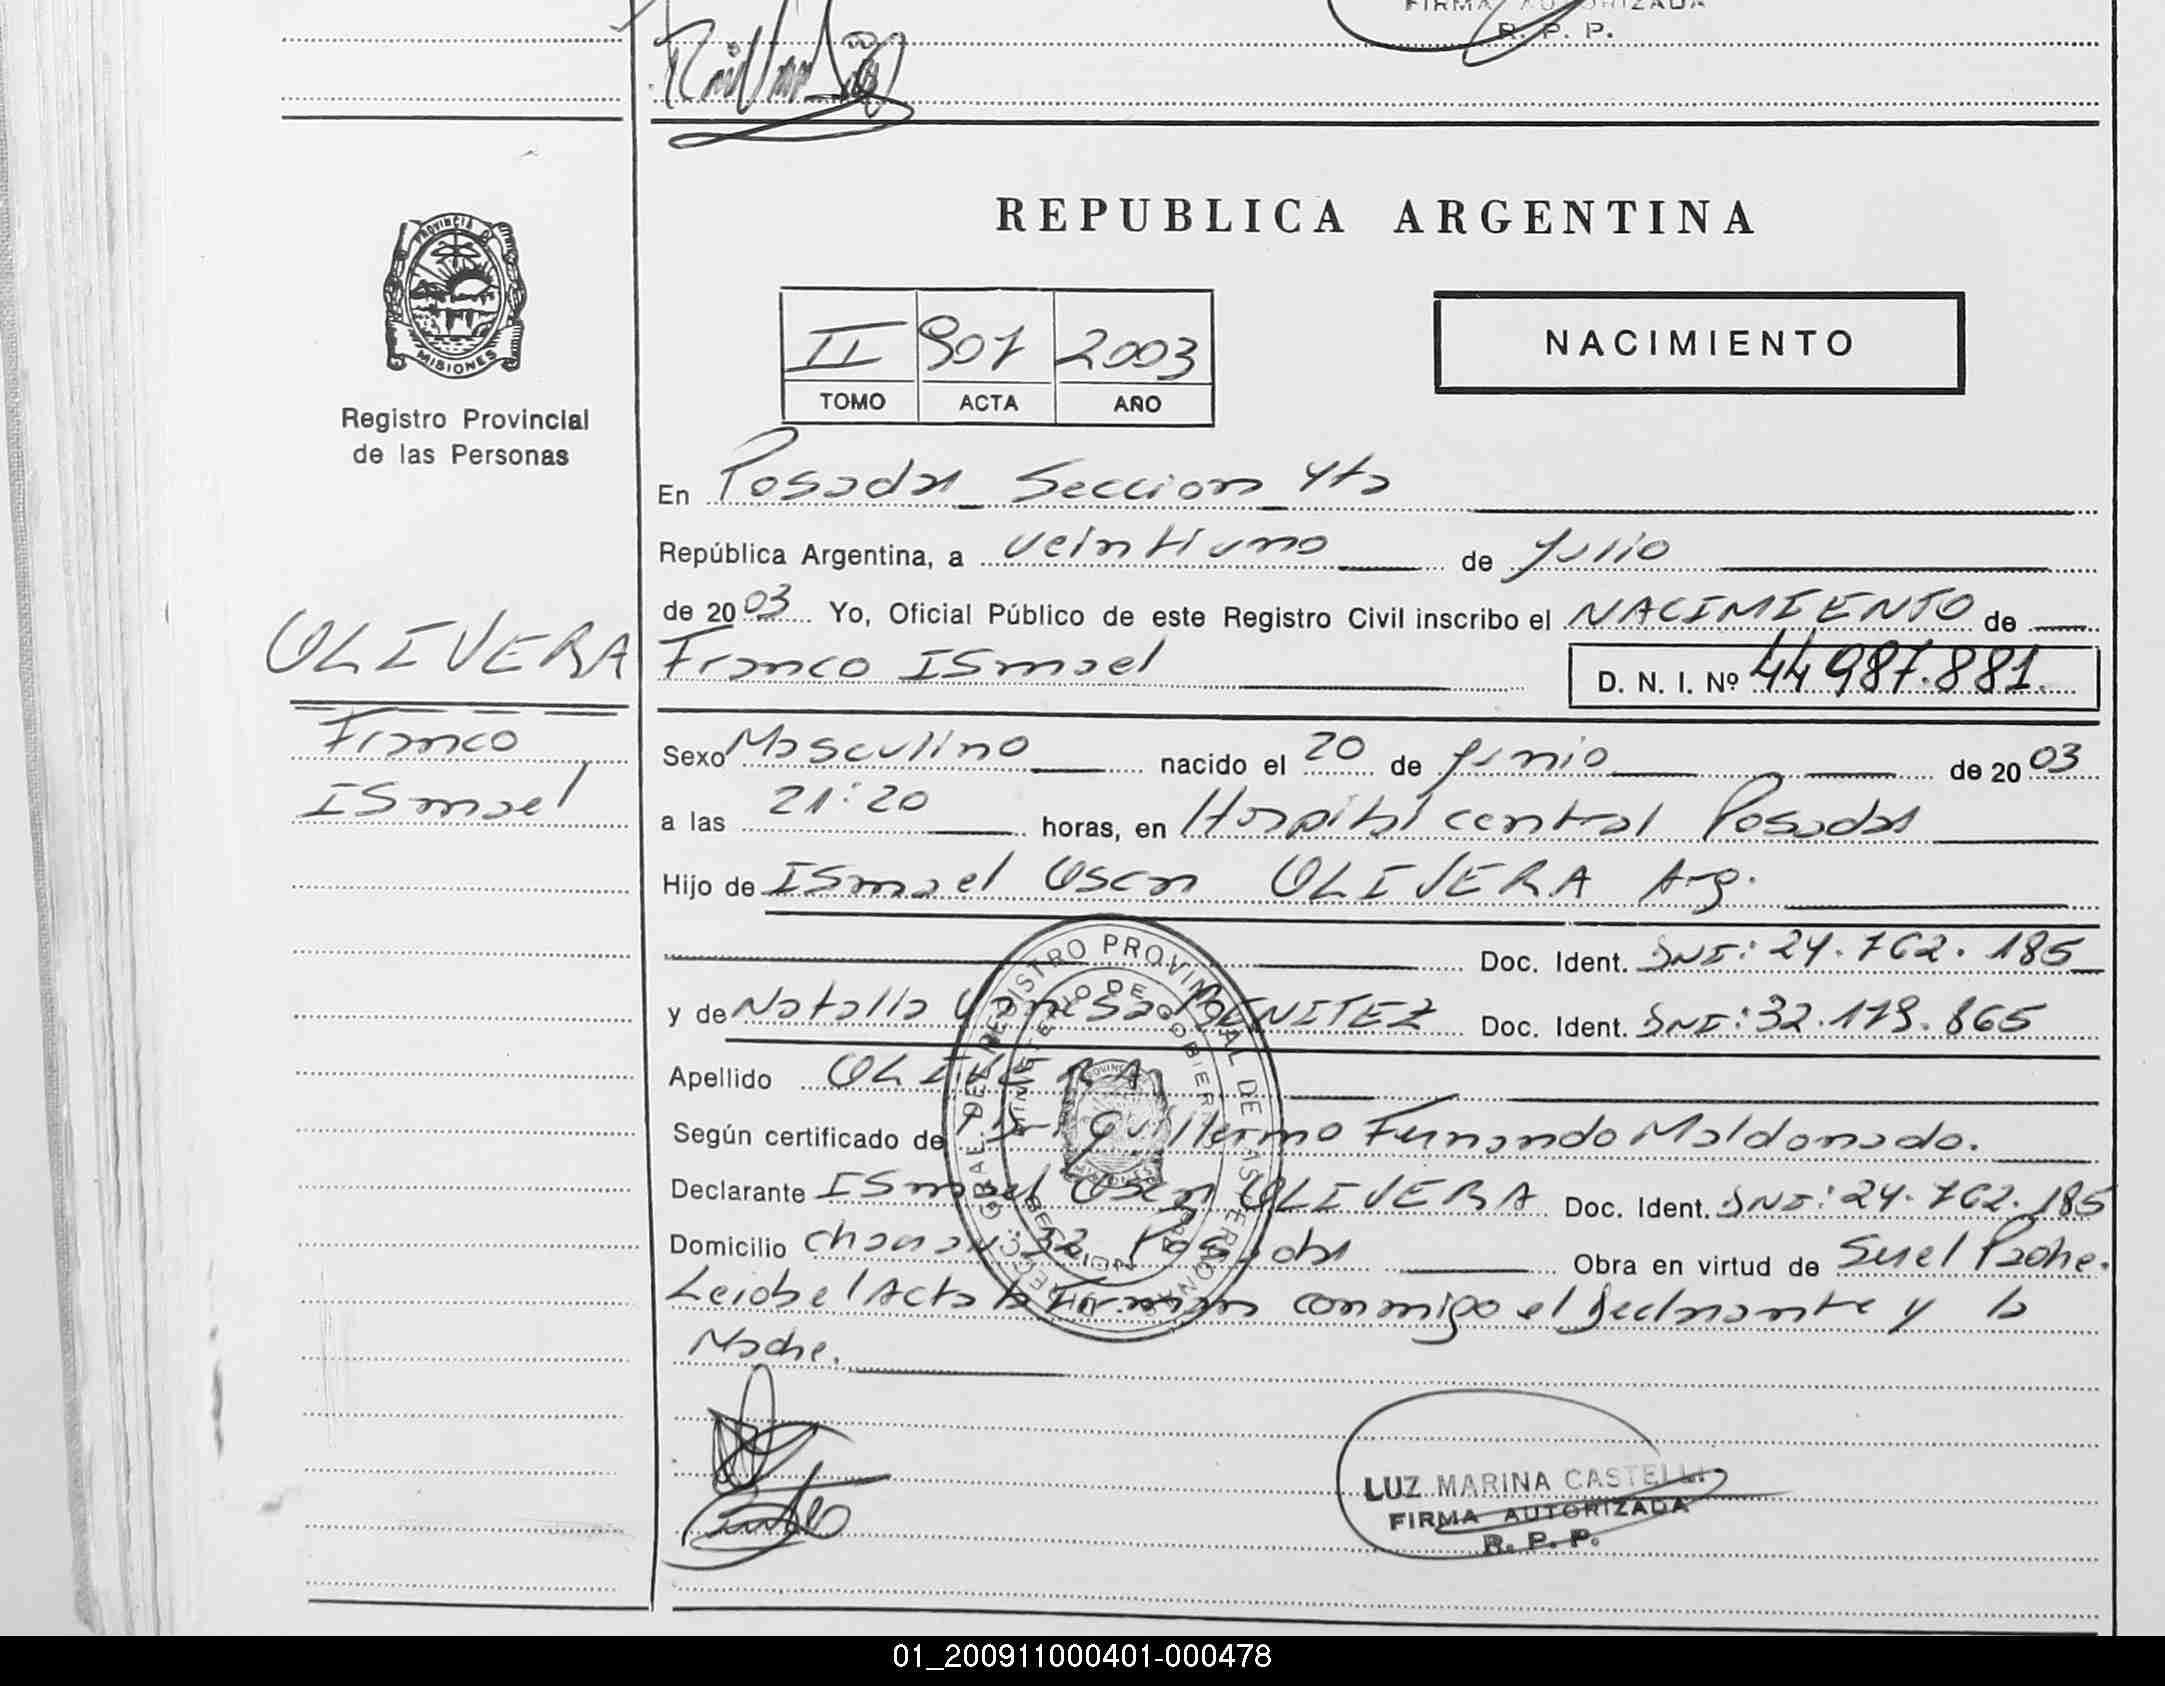 FIRMA AUTORIZADA
R. P. P.
PROVINCIA DE
MISIONES
Registro Provincial
de las Personas
REPUBLICA ARGENTINA
II 907 2003
TOMO ACTA AÑO
NACIMIENTO
En Posadas Seccion 4ta
República Argentina, a veintiuno de Julio
de 2003 Yo, Oficial Público de este Registro Civil inscribo el NACIMIENTO de
OLIVERA
Franco Ismael
D. N. I. Nº 44987.881.
Franco
Ismael
Sexo Masculino nacido el 20 de Junio de 2003
a las 21:20 horas, en Hospital central Posadas
Hijo de Ismael Oscar OLIVERA Arg.
Doc. Ident. DNI: 24.762.185
y de Natalia Vanesa BENITEZ Doc. Ident. DNI: 32.179.865
Apellido OLIVERA
Según certificado de Dr. Guillermo Fernando Maldonado.
Declarante Ismael Oscar OLIVERA Doc. Ident. DNI: 24.762.185
Domicilio 32 Posadas Obra en virtud de Ser el Padre.
Leida el Acta la Firman conmigo el Declarante y la
Madre.
REGISTRO PROVINCIAL DE LAS PERSONAS
MINISTERIO DE GOBIERNO
LUZ MARINA CASTELLI
FIRMA AUTORIZADA
R. P. P.
01_200911000401-000478